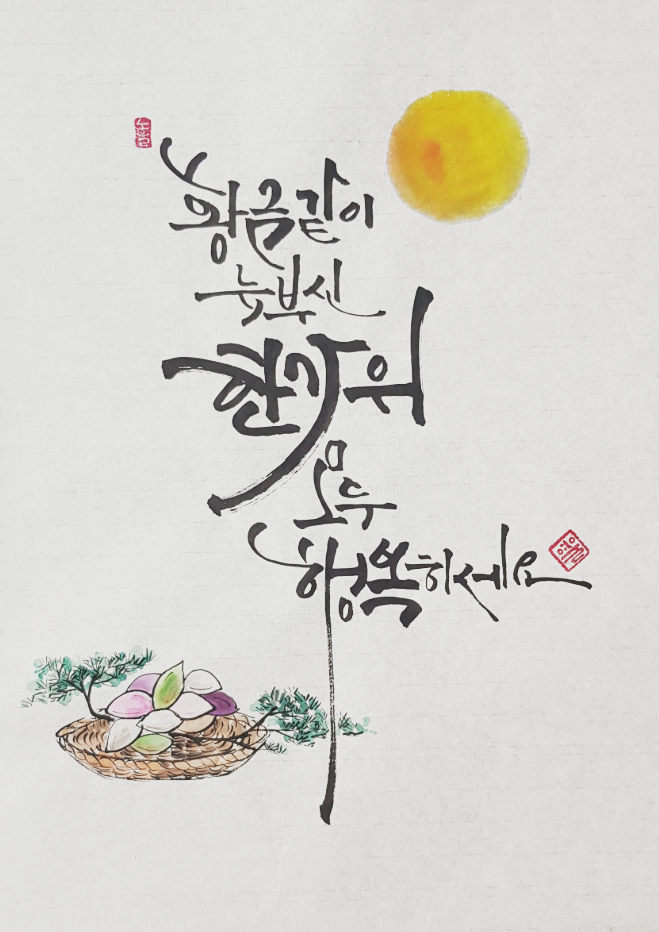 황금같이
눈부신
한가위
모두
행복하세요